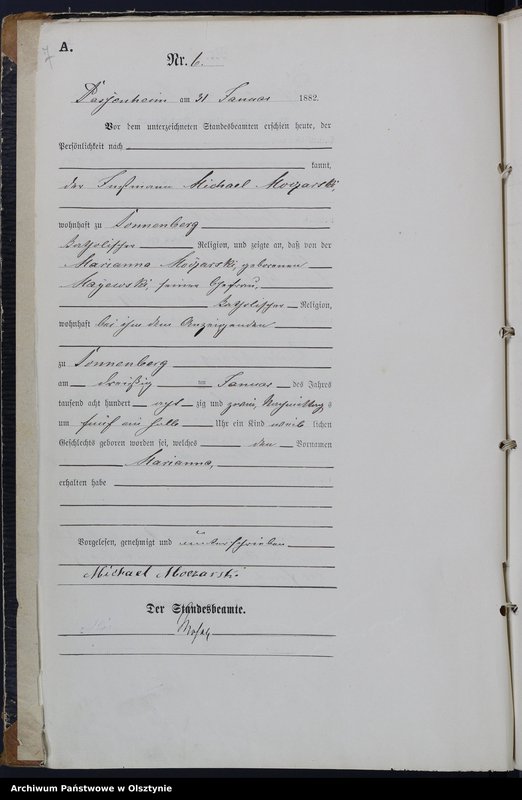 A.
Nr. 6.
Passenheim am 31 Januar 1882.
Vor dem unterzeichneten Standesbeamten erschien heute, der
Persönlichkeit nach
kannt,
der Michael Moczarski,
wohnhaft zu Sonnenberg
katholischer Religion, und zeigte an, daß von der
Marianna Moczarski, geborenen
Majewski, seiner Ehefrau,
katholischer Religion,
wohnhaft bei ihm dem Anzeigenden
zu Sonnenberg
am dreißig ten Januar des Jahres
tausend acht hundert acht zig und zwei, Nachmittags
um fünf ein halb Uhr ein Kind weib lichen
Geschlechts geboren worden sei, welches den Vornamen
Marianna,
erhalten habe
Vorgelesen, genehmigt und unterschrieben
Michael Moczarski
Der Standesbeamte.
Archiwum Państwowe w Olsztynie